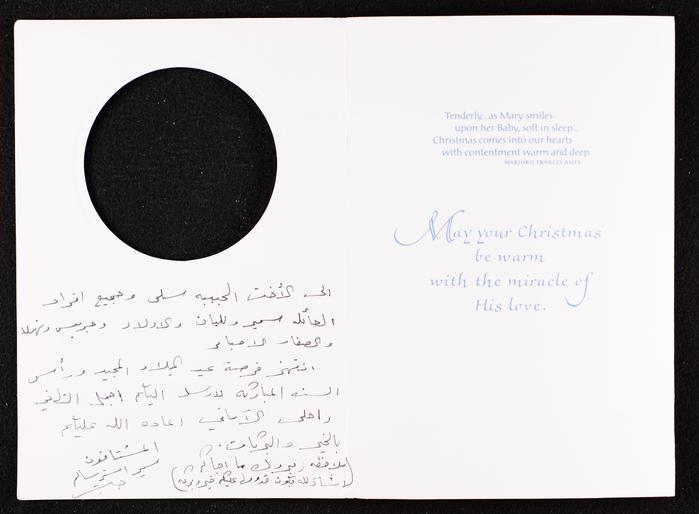 الى الأخت الحبيبه سلمى وجميع افراد
العائله سمير وليليان والاولاد وجريس ونهلا
والصغار الاحباء
انتهز فرصة عيد الميلاد المجيد ورأس
السنه المباركه لارسل اليكم اجمل التهاني
واحلى الأماني اعاده الله عليكم
بالخير والبركات.
المشتاقون
سمير
ملاحظه (مبروك ما اجاكم
انشاءلله تكون قدومها عليكم خير وبركه)
Tenderly...as Mary smiles
upon her Baby, soft in sleep...
Christmas comes into our hearts
with contentment warm and deep.
MARJORIE FRANCES AMES
May your Christmas
be warm
with the miracle of
His love.